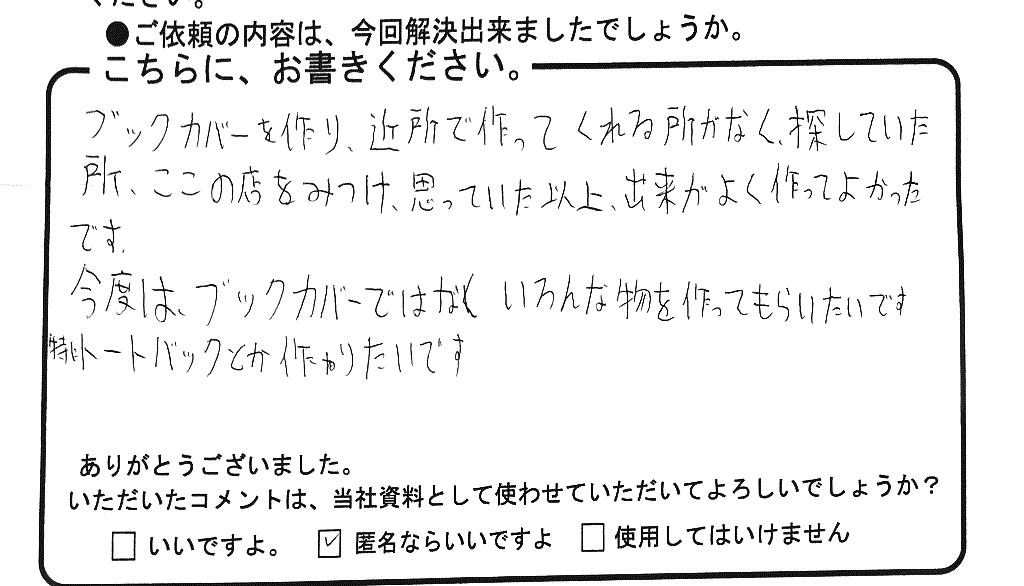 ください。
●ご依頼の内容は、今回解決出来ましたでしょうか。
こちらに、お書きください。
ブックカバーを作り、近所で作ってくれる所がなく、探していた
所、ここの店をみつけ、思っていた以上、出来がよく作ってよかった
です。
今度は、ブックカバーではなく いろんな物を作ってもらいたいです
特にトートバックとか作たりたいです
ありがとうございました。
いただいたコメントは、当社資料として使わせていただいてよろしいでしょうか？
□ いいですよ。 ☑ 匿名ならいいですよ □ 使用してはいけません